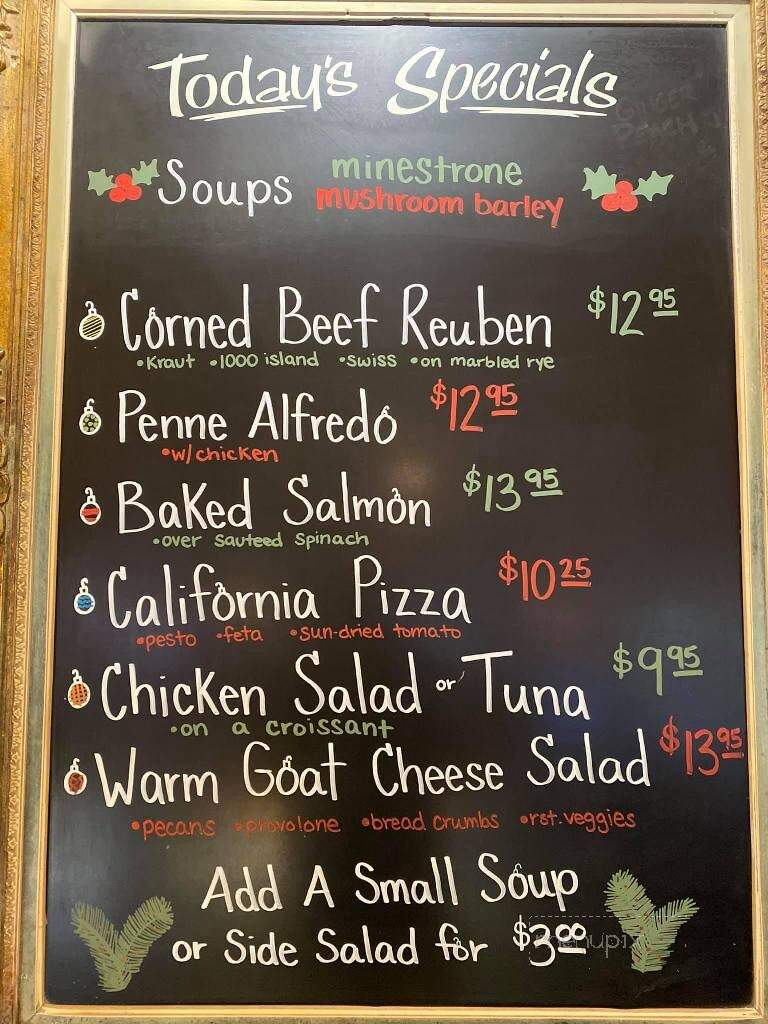 Today's Specials
Soups minestrone
mushroom barley
Corned Beef Reuben $12 95
•Kraut •1000 island •swiss •on marbled rye
Penne Alfredo $12 95
•w/chicken
Baked Salmon $13 95
•over sauteed spinach
California Pizza $10 25
•pesto •feta •sun-dried tomato
Chicken Salad or Tuna $9 95
•on a croissant
Warm Goat Cheese Salad $13 95
•pecans •provolone •bread crumbs •rst. veggies
Add A Small Soup
or Side Salad for $3.00
menupix